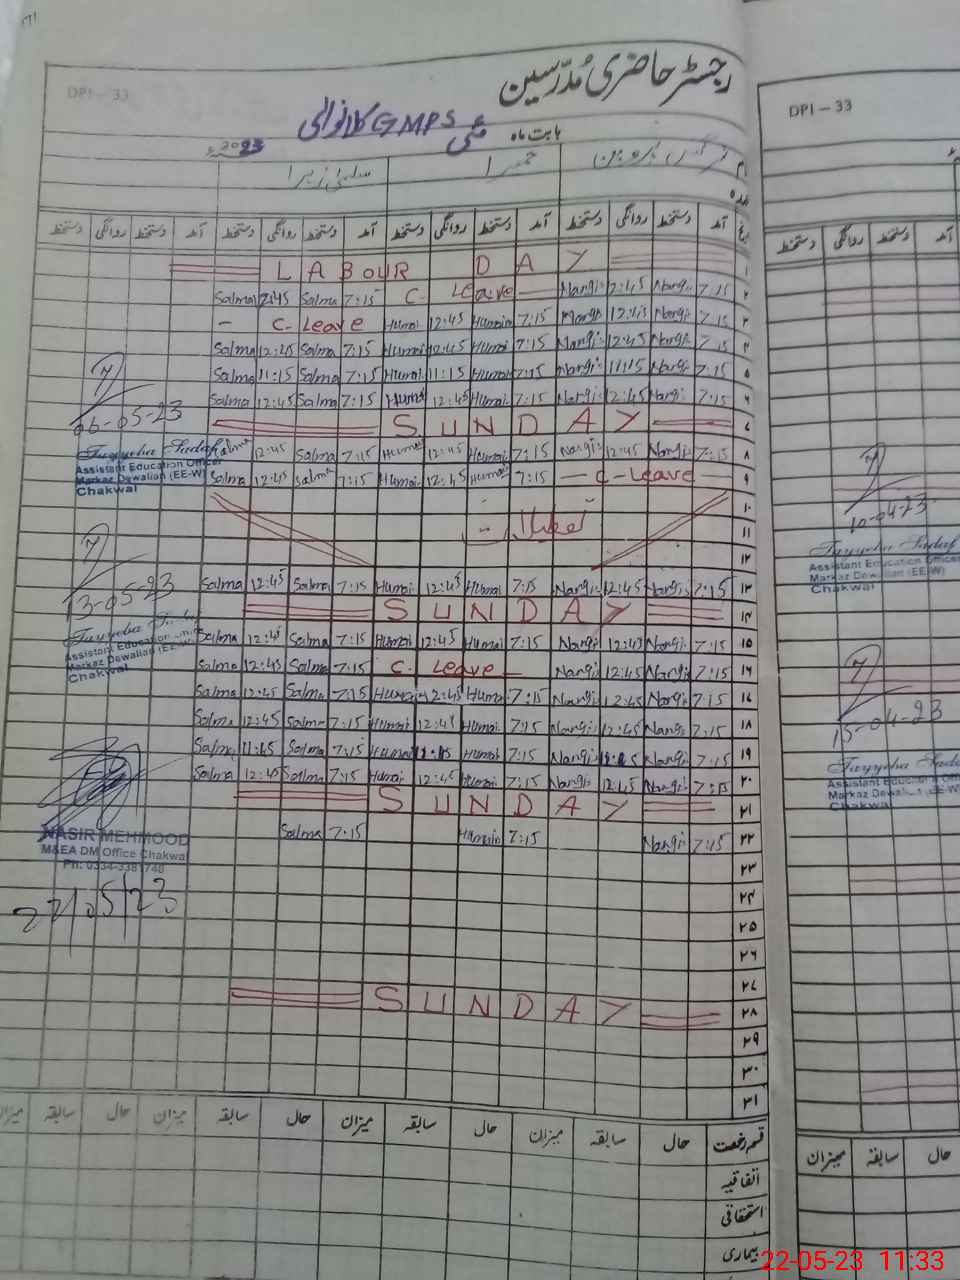 DPI - 33
رجسٹر حاضری مُدرّسین
بابت ماہ مئی GMPS کلانوالی 2023ء
نرگس پروین حمیرا سلمیٰ زہرا
آمد دستخط روانگی دستخط آمد دستخط روانگی دستخط آمد دستخط روانگی دستخط آمد دستخط روانگی دستخط
۱ LABOUR DAY
۲ 7:15 Nargi 12:45 Nargi C- Leave 7:15 Salma 12:45 Salma
۳ 7:15 Nargi 12:45 Nargi 7:15 Humai 12:45 Humai C- Leave
۴ 7:15 Nargi 12:45 Nargi 7:15 Humai 12:45 Humai 7:15 Salma 12:45 Salma
۵ 7:15 Nargi 11:15 Nargi 7:15 Humai 11:15 Humai 7:15 Salma 11:15 Salma
۶ 7:15 Nargi 12:45 Nargi 7:15 Humai 12:45 Humai 7:15 Salma 12:45 Salma
06-05-23
۷ SUNDAY
Tayyeba Sadaf
Assistant Education Officer
Markaz Dewalian (EE-W)
Chakwal
۸ 7:15 Nargi 12:45 Nargi 7:15 Humai 12:45 Humai 7:15 Salma 12:45 Salma
۹ C- Leave 7:15 Humai 12:45 Humai 7:15 Salma 12:45 Salma
۱۰
۱۱ تعطیلات
۱۲
۱۳ 7:15 Nargi 12:45 Nargi 7:15 Humai 12:45 Humai 7:15 Salma 12:45 Salma
13-05-23
۱۴ SUNDAY
Tayyeba Sadaf
Assistant Education Officer
Markaz Dewalian (EE-W)
Chakwal
۱۵ 7:15 Nargi 12:45 Nargi 7:15 Humai 12:45 Humai 7:15 Salma 12:45 Salma
۱۶ 7:15 Nargi 12:45 Nargi C- Leave 7:15 Salma 12:45 Salma
7:15 Nargi 12:45 Nargi 7:15 Humai 12:45 Humai 7:15 Salma 12:45 Salma
۱۸ 7:15 Nargi 12:45 Nargi 7:15 Humai 12:45 Humai 7:15 Salma 12:45 Salma
۱۹ 7:15 Nargi Nargi 7:15 Humai Humai 7:15 Salma 11:45 Salma
۲۰ 7:15 Nargi 12:45 Nargi 7:15 Humai 12:45 Humai 7:15 Salma 12:45 Salma
۲۱ SUNDAY
۲۲ 7:15 Nargi 7:15 Humain 7:15 Salma
NASIR MEHMOOD
M&EA DM Office Chakwal
22/05/23
۲۳
۲۴
۲۵
۲۶
۲۷
۲۸ SUNDAY
۲۹
۳۰
۳۱
قسم رخصت حال سابقہ میزان حال سابقہ میزان حال سابقہ میزان حال سابقہ میزان
اتفاقیہ
استحقاقی
بیماری
DPI - 33
آمد دستخط روانگی دستخط
10-04-23
Tayyeba Sadaf
Assistant Education Officer
Markaz Dewalian (EE-W)
Chakwal
15-04-23
Tayyeba Sadaf
Assistant Education Officer
Markaz Dewalian (EE-W)
Chakwal
حال سابقہ میزان
22-05-23 11:33